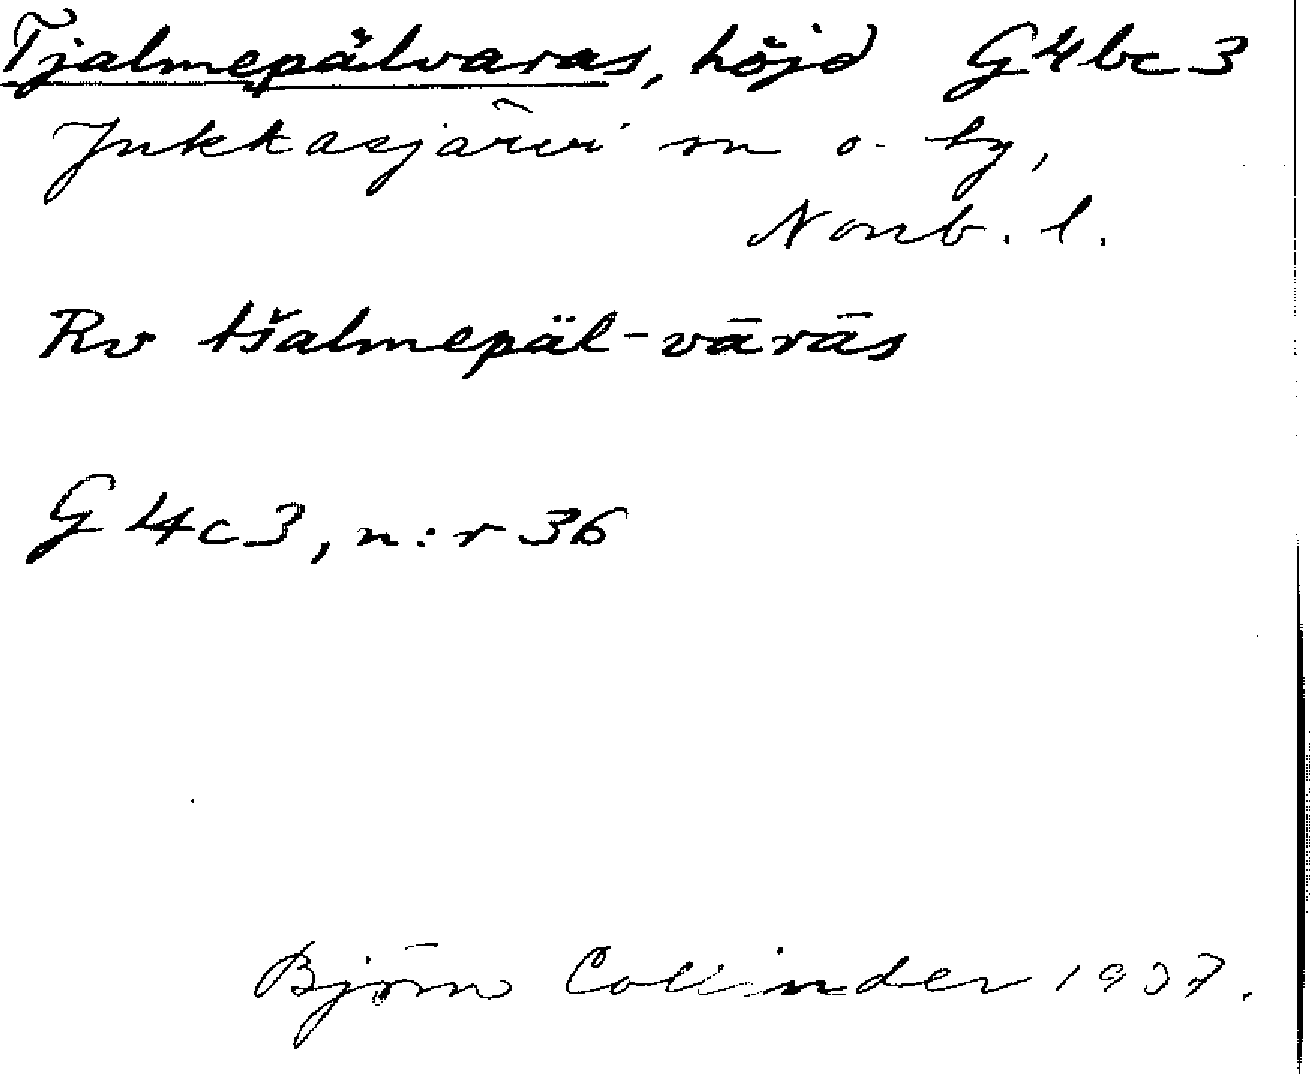 Tjalmepälvaras, höjd G4bc3
Jukkasjärvi sn o. by,
Norrb. l.
Rv tšalmepäl-vārās
G4c3, n:r 36
Björn Collinder 1937.